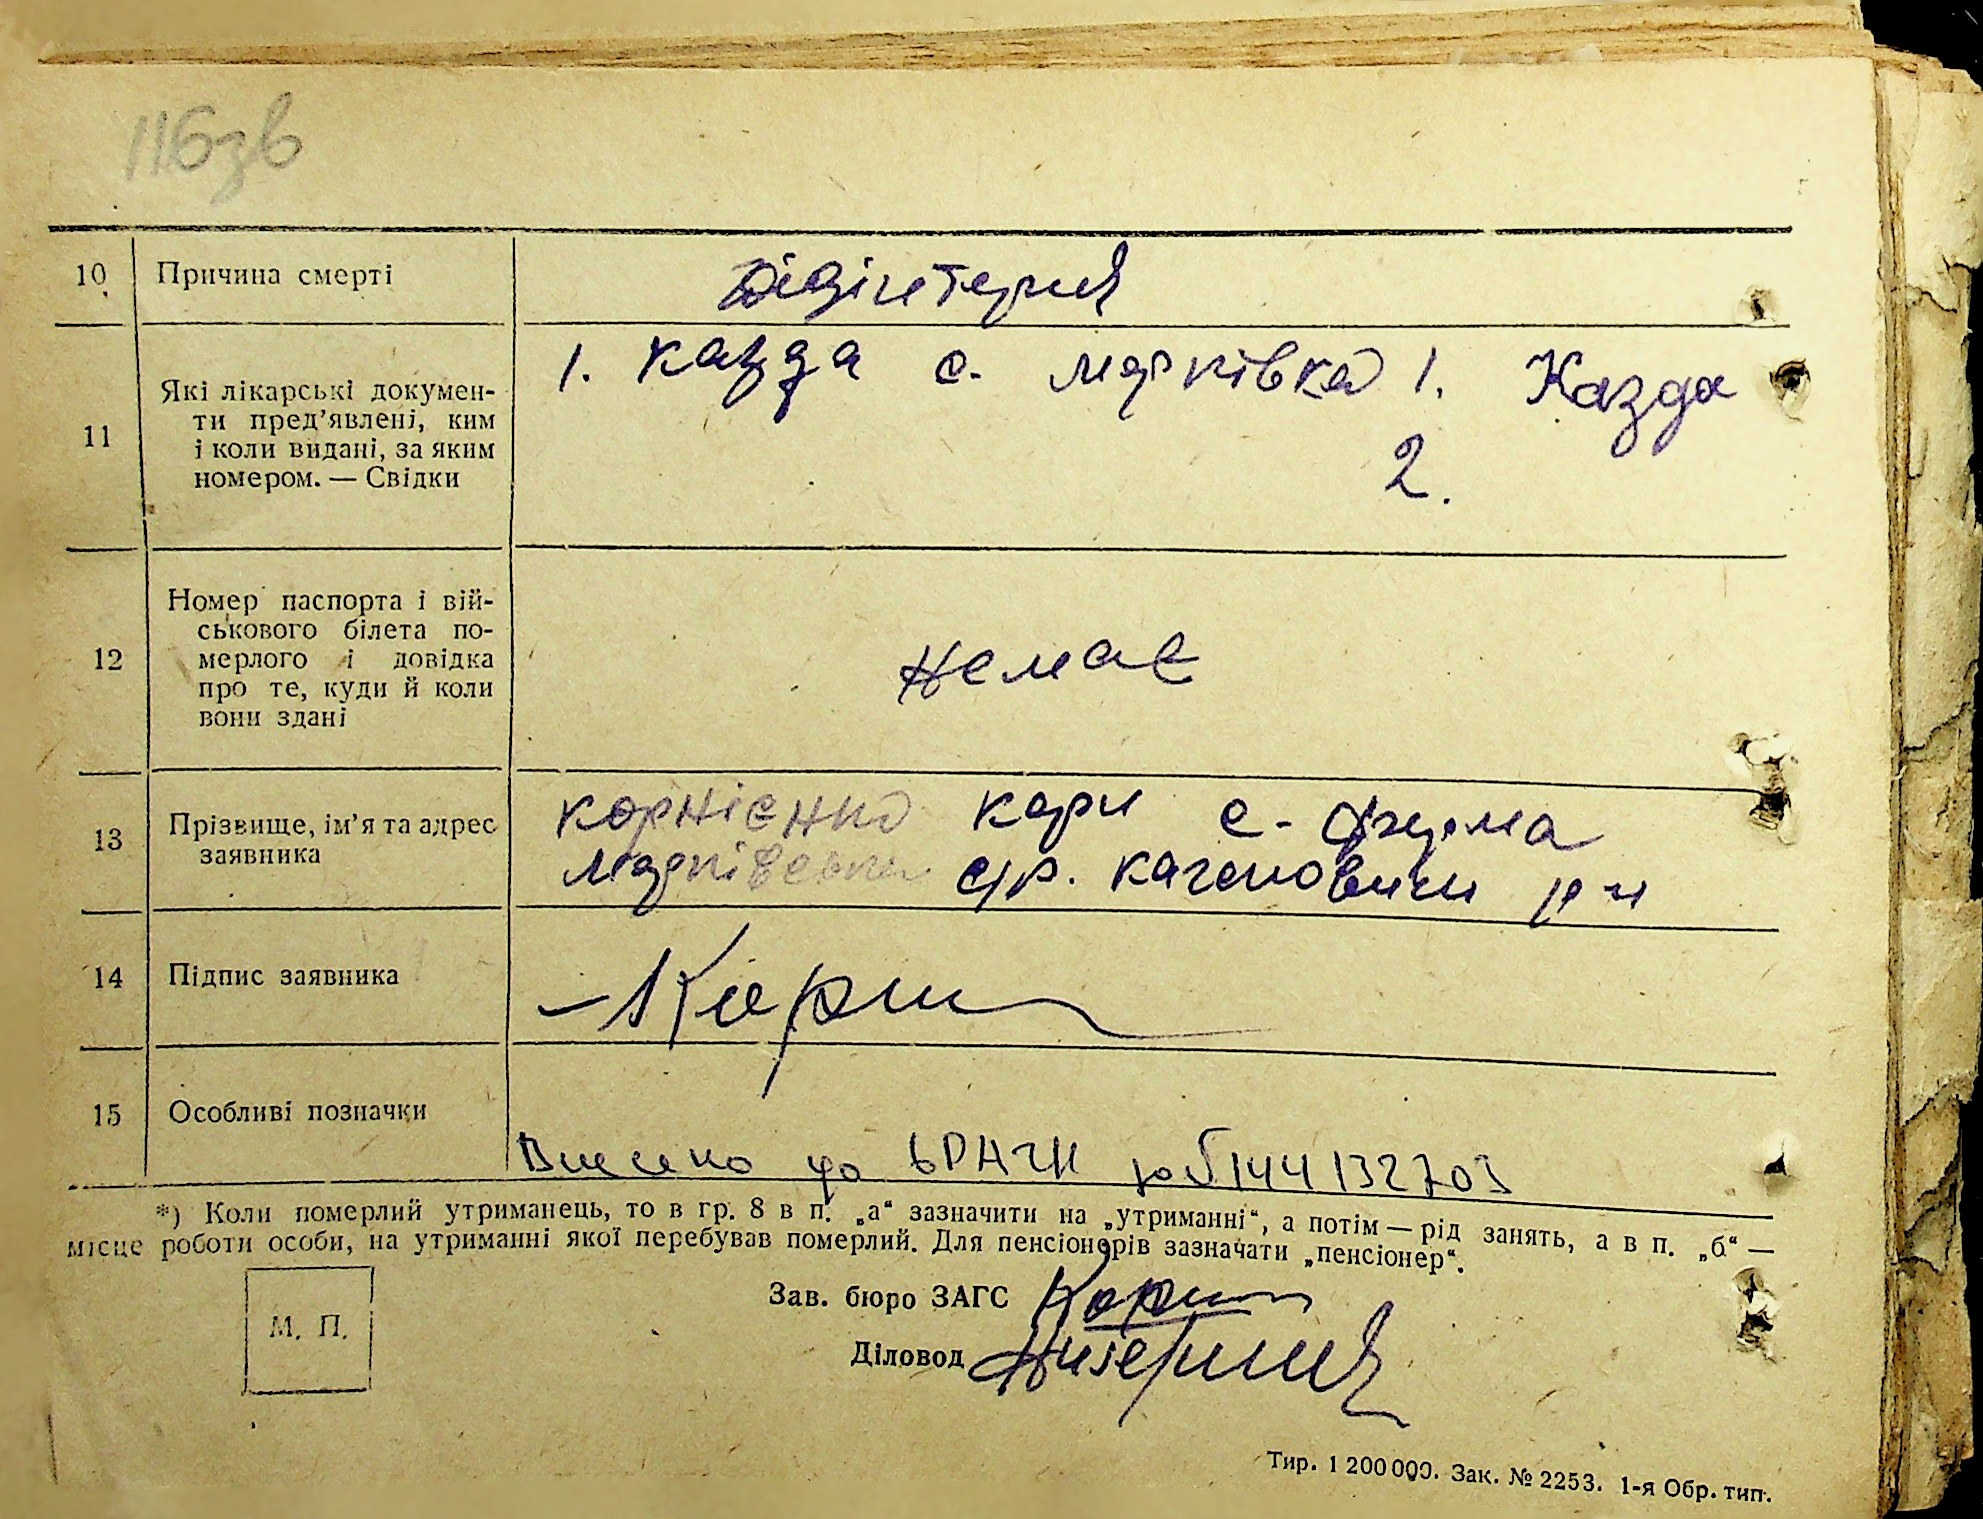 116зв
10 Причина смерті дізінтерия
11 Які лікарські документи пред’явлені, ким і коли видані, за яким номером. — Свідки
1. Казда с. Марківка 1. Казда
2.
12 Номер паспорта і військового білета померлого і довідка про те, куди й коли вони здані
немає
13 Прізвище, ім’я та адрес заявника
Корнієнко Кари с-
Марківська с/р. Каганович р н
14 Підпис заявника
15 Особливі позначки
Внесено до 00144132703
*) Коли померлий утриманець, то в гр. 8 в п. „а“ зазначити на „утриманні“, а потім — рід занять, а в п. „б“ —
місце роботи особи, на утриманні якої перебував померлий. Для пенсіонерів зазначати „пенсіонер“.
Зав. бюро ЗАГС
М. П.
Діловод
Тир. 1 200 000. Зак. № 2253. 1-я Обр. тип.